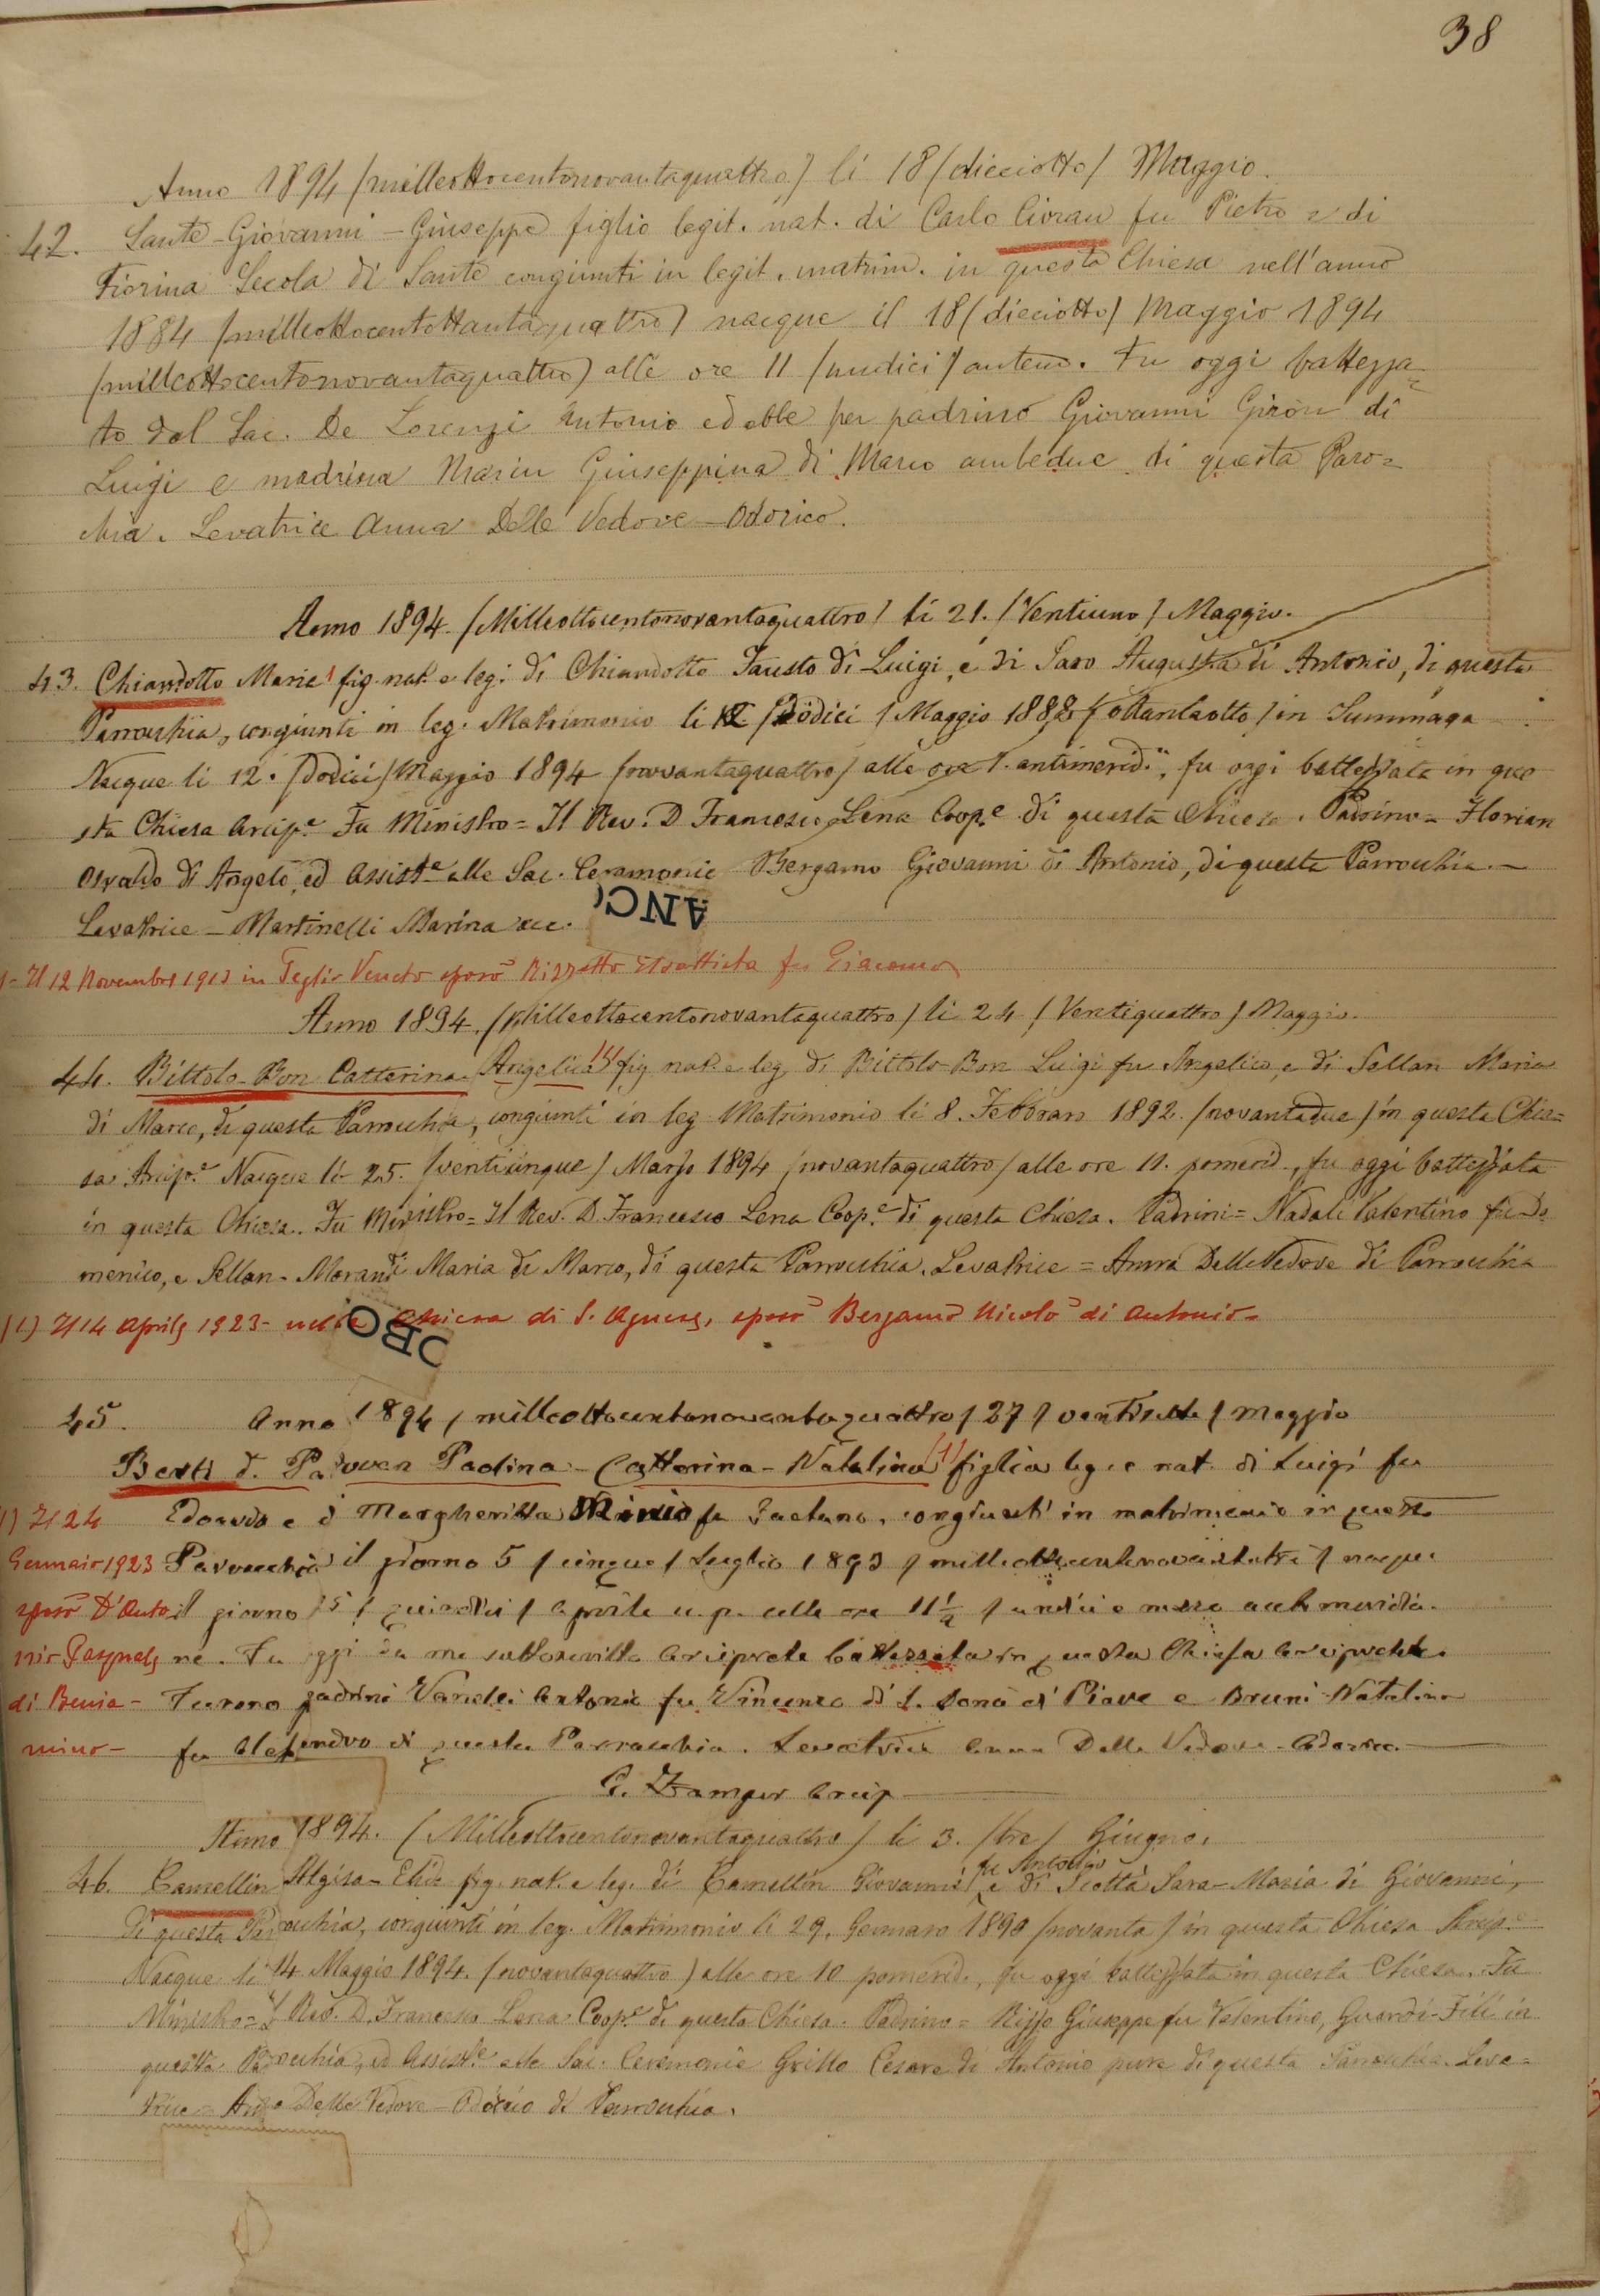 38
Anno 1894 /milleottocentonovantaquattro/ li 18 /dieciotto/ Maggio.
42. Sante-Giovanni-Giuseppe figlio legit. nat. di Carlo Cioran fu Pietro e di
Fiorina Secola di Sante congiunti in legit. matrim. in questa Chiesa nell'anno
1884 /milleottocentottantaquattro/ nacque il 18 /dieciotto/ Maggio 1894
/milleottocentonovantaquattro/ alle ore 11 /undici/ antem. Fu oggi battezza=
to dal Sac. De Lorenzi Antonio ed ebbe per padrino Giovanni Giròn di
Luigi e madrina Marin Giuseppina di Marco ambedue di questa Paro=
chia. Levatrice Anna Delle Vedove-Odorico.
Anno 1894. /Milleottocentonovantaquattro/ li 21. /Ventiuno/ Maggio.
43. Chiandotto Maria fig. nat. e leg. di Chiandotto Fausto di Luigi, e di Saro Augusta di Antonio, di questa
Parrochia, congiunti in leg. Matrimonio li 12 /Dodici/ Maggio 1888 /ottantaotto/ in Summaga
Nacque li 12. /Dodici/ Maggio 1894 /novantaquattro/ alle ore 1. antimerid., fu oggi battezzata in que
sta Chiesa Arcip.e Fu Ministro = Il Rev. D Francesco Lena Coop.e di questa Chiesa. Padrino = Florian
Osvaldo di Angelo, ed Assist.e alle Sac. Ceremonie Bergamo Giovanni di Antonio, di questa Parrochia. —
Levatrice — Martinelli Marina ecc.
ANCO
1 - Il 12 Novembre 1913 in Teglio Veneto sposò Rizzetto fu Giacomo
Anno 1894. /Milleottocentonovantaquattro/ li 24 /Ventiquattro/ Maggio.
44. Bittolo-Bon Catterina-Angelica (1) fig nat. e leg di Bittolo-Bon Luigi fu Angelico, e di Sellan Maria
di Marco, di questa Parrochia, congiunti in leg Matrimonio li 8. Febbraro 1892. /novantadue/ in questa Chie=
sa Arcip.e Nacque li 25. /venticinque/ Marzo 1894 /novantaquattro/ alle ore 11. pomerid., fu oggi battezzata
in questa Chiesa. Fu Ministro = Il Rev. D. Francesco Lena Coop.e di questa Chiesa. Padrini = Nadali Valentino fu Do
menico, e Sellan-Morandi Maria di Marco, di questa Parrochia. Levatrice = Anna Delle Vedove di Parrochia
(1) Il 14 Aprile 1923 - nella Chiesa di S. Agnese, sposò Bergamo Nicolò di Antonio -
OBO
45. Anno 1894 / milleottocentonovantaquattro / 27 / ventisette / Maggio
Berti d. Paduvan Paolina-Catterina-Natalina (1) figlia leg. e nat. di Luigi fu
Edoardo e di Margheritta Minio fu Gaetano, congiunti in matrimonio in questa
Parrocchia il giorno 5 / cinque / Luglio 1893 / milleottocentonovantatre / nacque
il giorno 15 / quindici / Aprile u. p. alle ore 11½ / undici e mezzo antimeridia-
ne. Fu oggi da me sottoscritto Arciprete battezzata in questa Chiesa Arcipretale.
Furono padrini Antonio fu Vincenzo di S. Donà di Piave e Bruni Natalina
fu Alessandro di questa Parrocchia. Levatrice Anna Delle Vedove-Odorico.
1) Il 24
Gennaio 1923
sposò D'Anto
nio Pasquale
di Benia-
mino -
G. Zamper Arcip
Anno 1894. (Milleottocentonovantaquattro) li 3. /tre/ Giugno.
46. Camellin Algisa-Elisa fig. nat. e leg. di Camellin Giovanni fu Antonio, e di Scottà Sara-Maria di Giovanni,
di questa Parrochia, congiunti in leg. Matrimonio li 29. Gennaro 1890 /novanta/ in questa Chiesa Arcip.e
Nacque li 14 Maggio 1894. (novantaquattro) alle ore 10 pomerid., fu oggi battezzata in questa Chiesa. Fu
Ministro = Il Rev. D. Francesco Lena Coop.e di questa Chiesa. Padrino = Rizzo Giuseppe fu Valentino, Guardi-Fili in
questa Parrochia, ed Assist.e alle Sac. Ceremonie Grillo Cesare di Antonio pure di questa Parrochia. Leva=
trice = Anna Delle Vedove-Odorico di Parrochia.